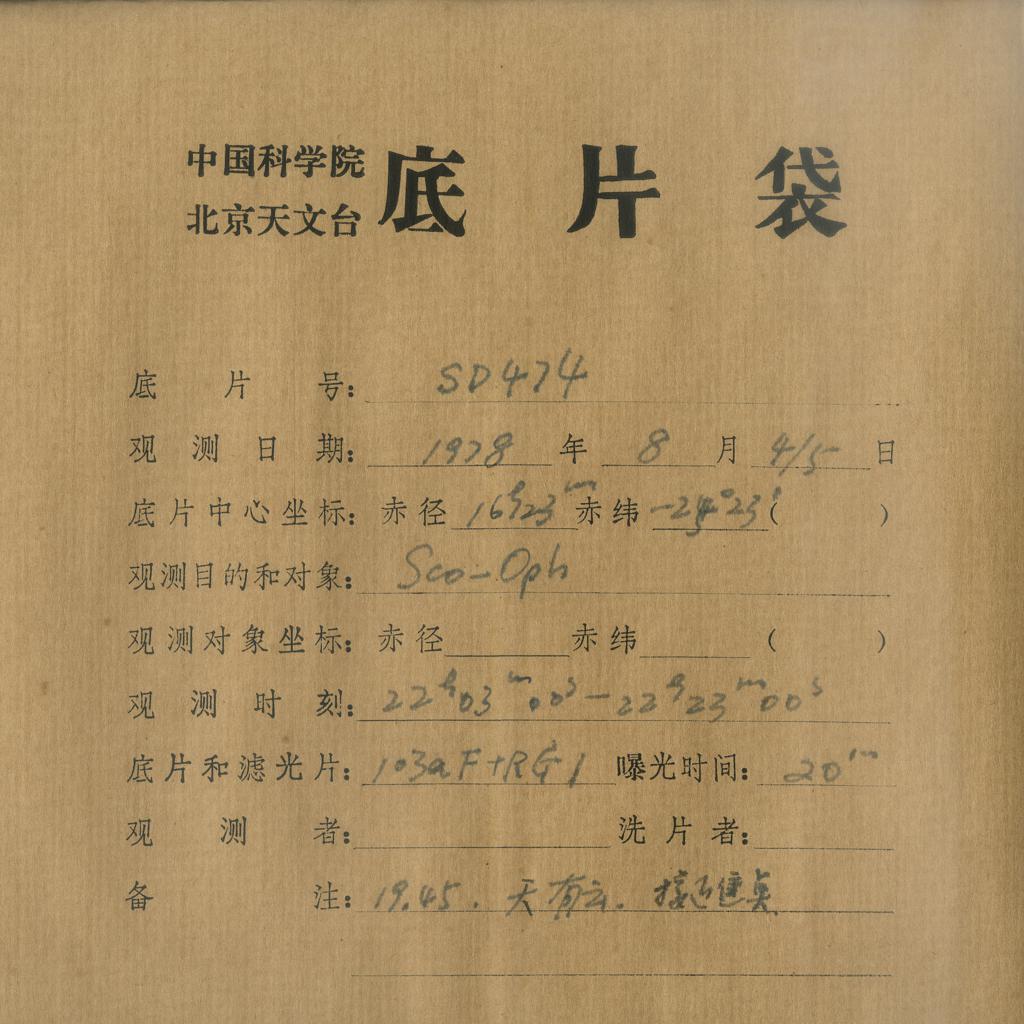 中国科学院
北京天文台
底片袋
底片号: SD474
观测日期: 1978年 8月 4/5日
底片中心坐标: 赤径 16h23m 赤纬 -24°23′( )
观测目的和对象: Sco-Oph
观测对象坐标: 赤径 赤纬 ( )
观测时刻: 22h03m00s-22h23m00s
底片和滤光片: 103aF+RG1 曝光时间: 20m
观测者: 洗片者:
备注: 19.45. 天有云. 接近